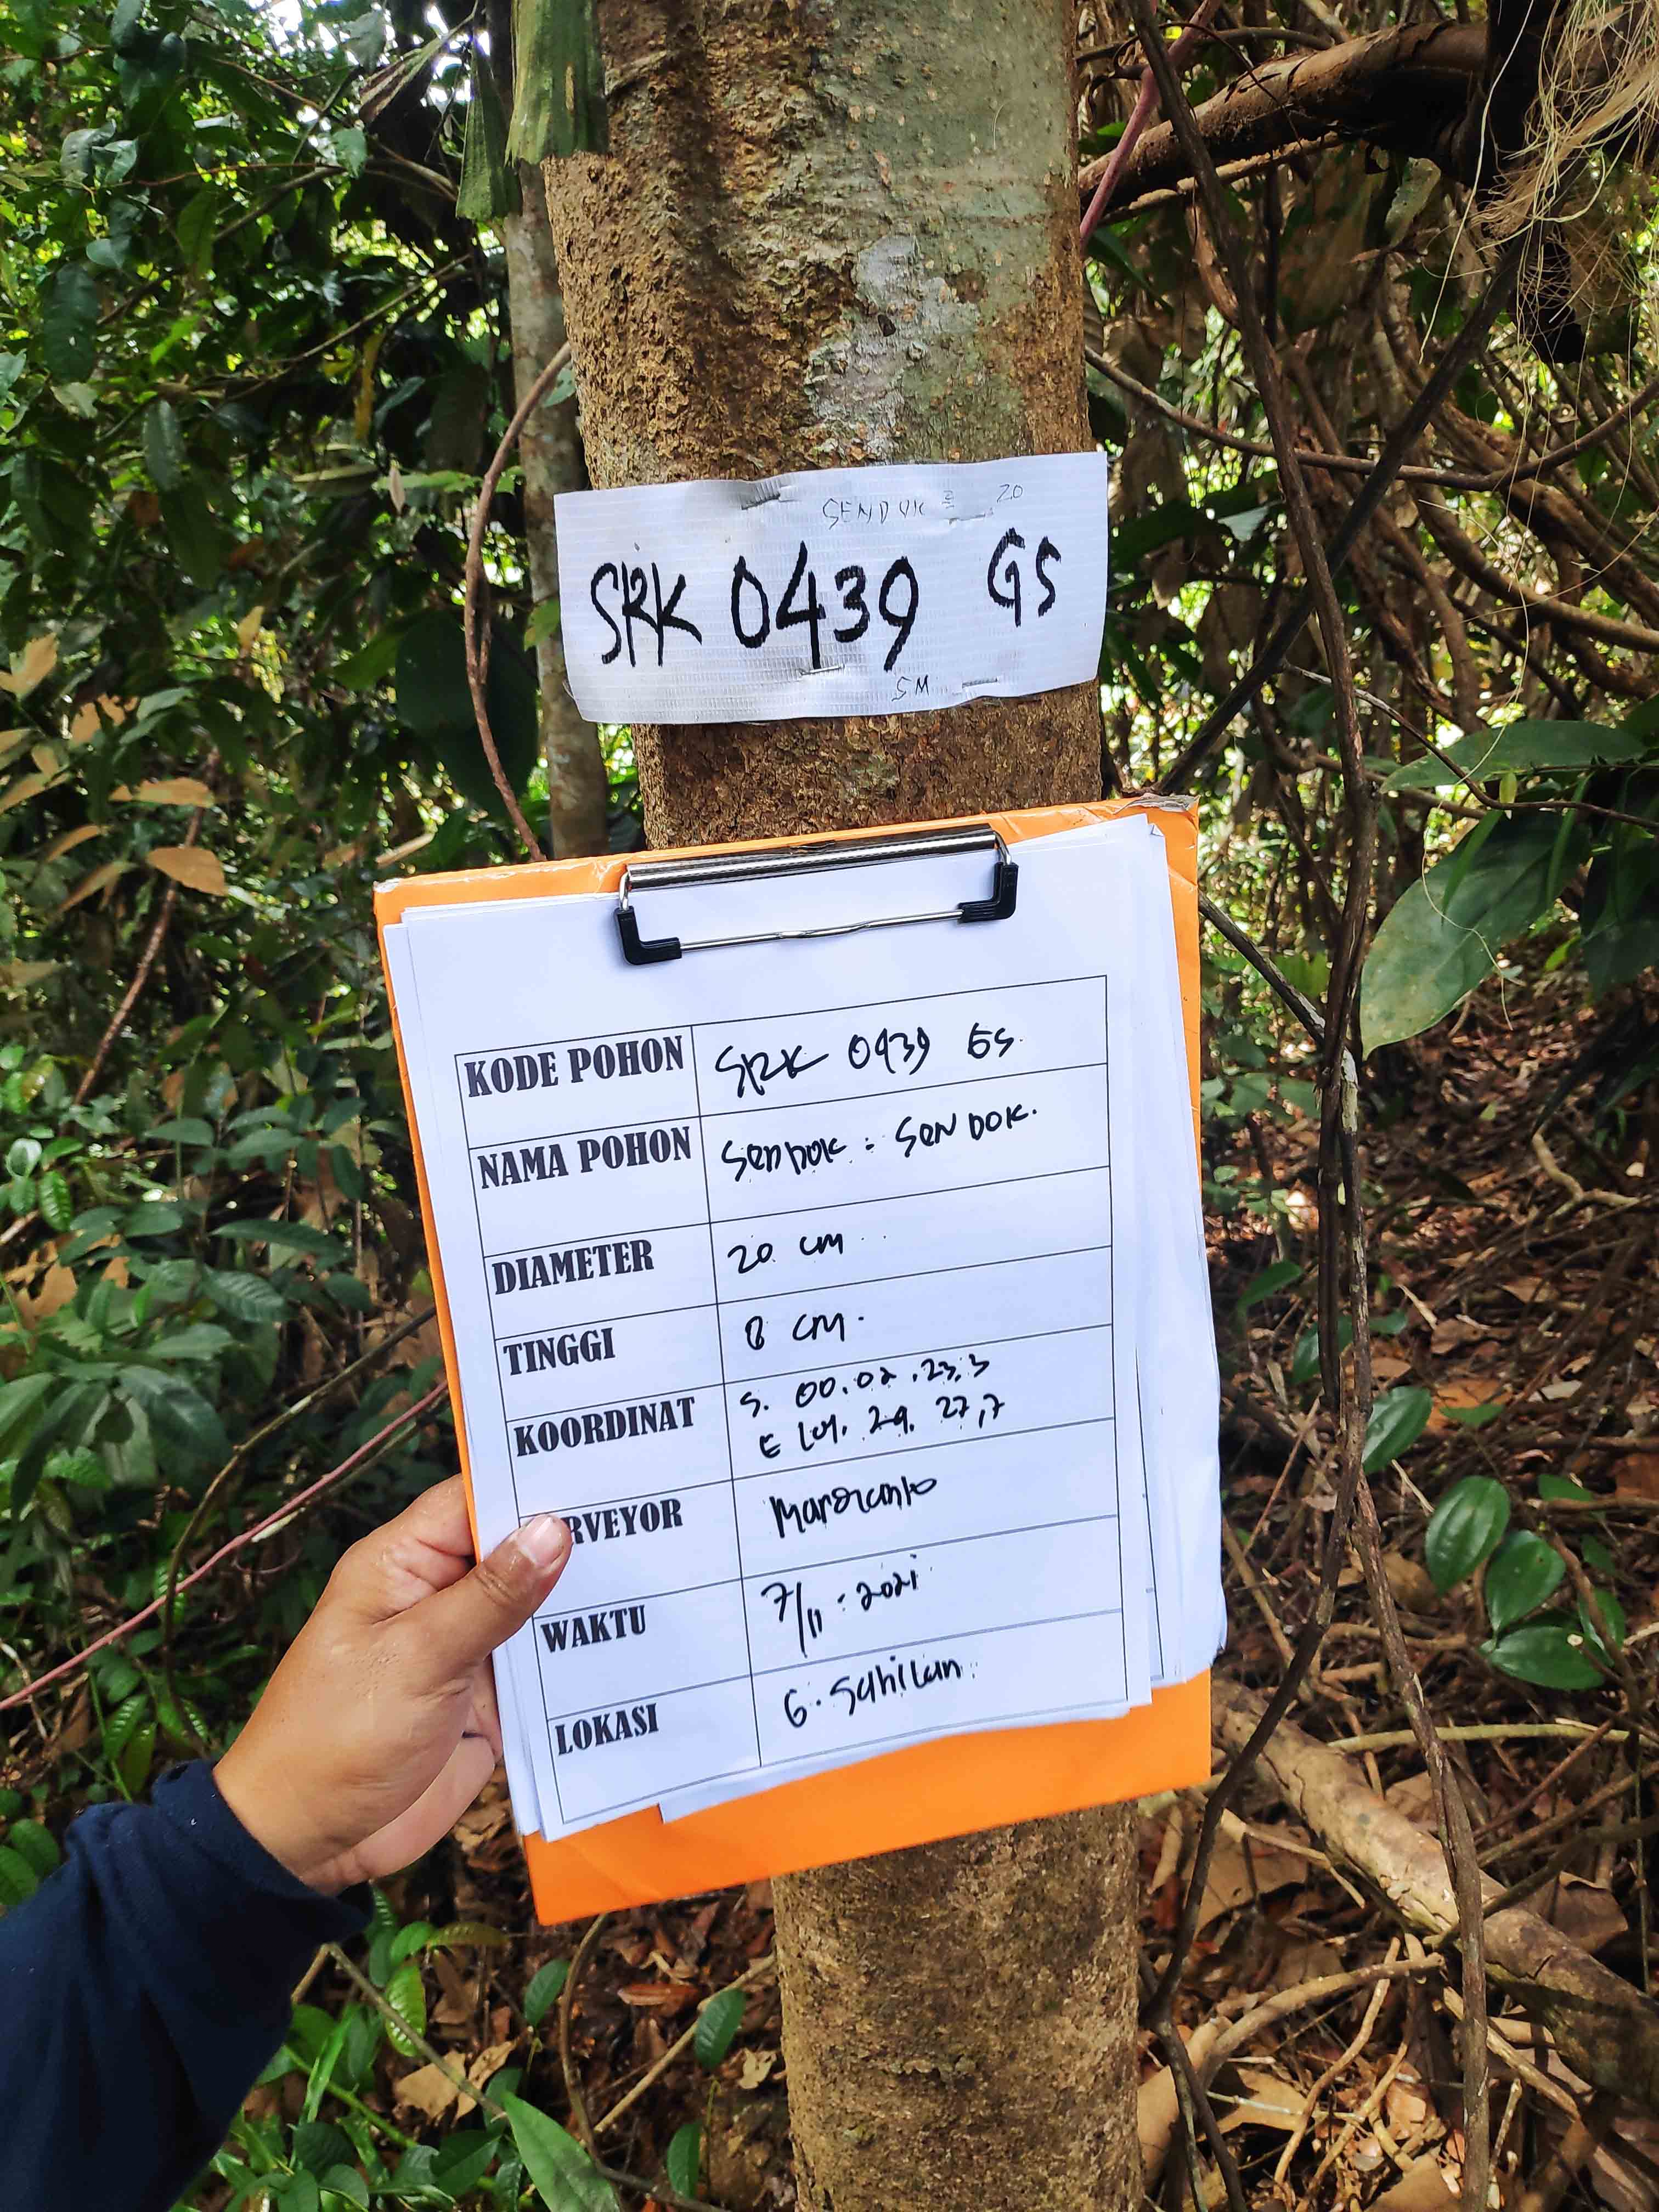 SENDOK = 20
SRK 0439 GS
5M
KODE POHON SRK 0439 GS
NAMA POHON Sendok : SENDOK.
DIAMETER 20 cm
TINGGI 8 cm.
KOORDINAT S. 00.02.23,3
E 101. 29. 27,7
RVEYOR
WAKTU 7/11 : 2021
LOKASI G. Sahilan